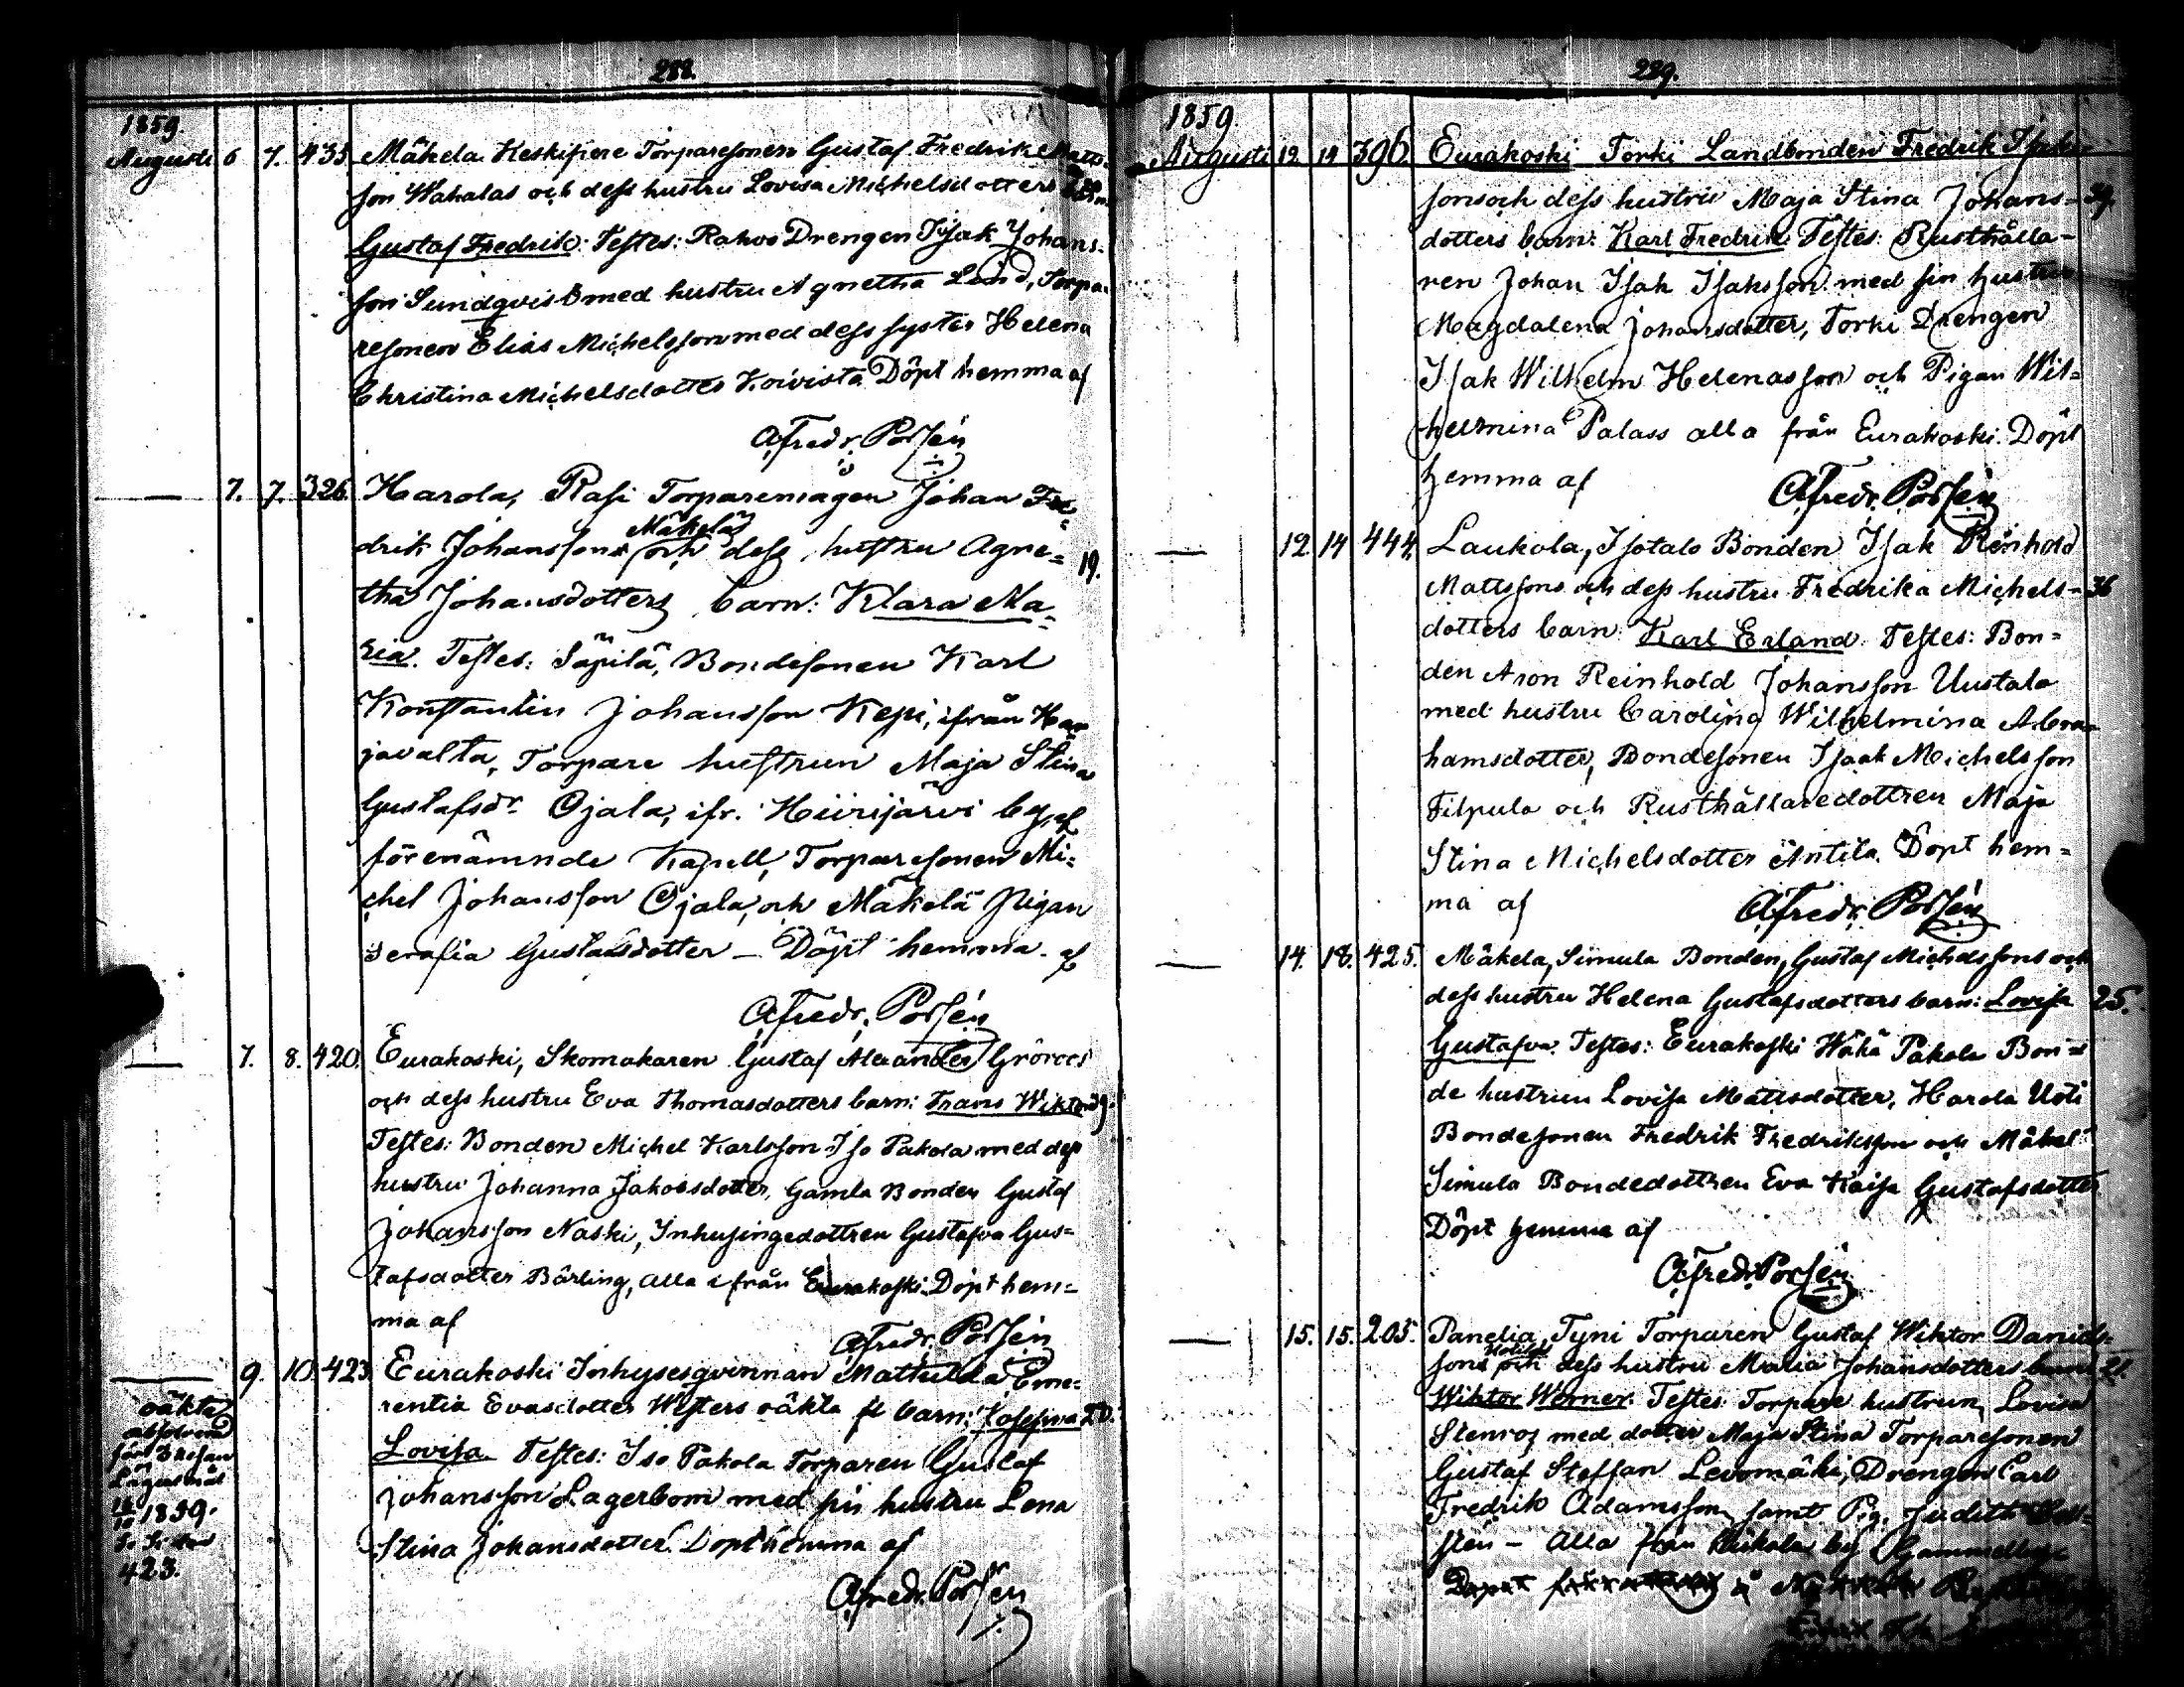 288.
1859.
Augusti 6 7. 435 Mäkelä Keskipere Torparesonen Gustaf Fredrik Matts-
son Wahalas och dess hustru Lovisa Michelsdotters
Gustaf Fredrik: Testes: Rahvo Drengen Isak Johans-
son Sundqvist med hustru Agnetha Lind, Torpa-
resonen Elias Michelsson med dess syster Helena
Christina Michelsdotter Koivista Döpt hemma af
A. Fredr. Porsén
— 7. 7. 326 Harola, Rasi Torparemågen Johan Fre-
drik Johanssons Mäkelä och dess hustru Agne- 19.
tha Johansdotters barn: Klara Ma-
ria. Testes: Säpilä, Bondesonen Karl
Konstantin Johansson Kepi, ifrån Har-
javalta, Torpare hustrun Maja Stina
Gustafsdr Ojala, ifr. Hiirijärvi by, af
förenämnde Kapell, Torparesonen Mi-
chel Johansson Ojala, och Mäkelä Pigan
Serafia Gustafsdotter — Döpt hemma af
A. Fredr. Porsén
— 7. 8. 420. Eurakoski, Skomakaren Gustaf Alexander Grönroos
och dess hustru Eva Thomasdotters barn: Frans Wiktor
Testes: Bonden Michel Karlsson Iso Pakola med dess
hustru Johanna Jakobsdotter, Gamla Bonden Gustaf
Johansson Naski, Inhysingedottren Gustafva Gus-
tafsdotter Bärling, alla ifrån Eurakoski. Döpt hem-
ma af
A. Fredr. Porsén
— 9. 10. 423 Eurakoski Inhysesqvinnan Mathilda Eme-
rentia Evasdotter Westers oäkta fl barn: Josefina 20.
Lovisa Testes: Iso Pakola Torparen Gustaf
Johansson Lagerbom med sin hustru Lena
Stina Johansdotter. Döpt hemma af
A. Fredr. Porsén
oäkta
1859.
423.
289.
1859.
Augusti 12 14 396 Eurakoski Torki Landbonden Fredrik Isaks-
sons och dess hustru Maja Stina Johans- 39.
dotters barn: Karl Fredrik: Testes: Rusthålla-
ren Johan Isak Isaksson med sin hustru
Magdalena Johansdotter, Torki Drengen
Isak Wilhelm Helenasson och Pigan Wil-
helmina Palass alla från Eurakoski. Döpt
hemma af A. Fredr. Porsén
— 12 14 444. Laukola, Isotalo Bonden Isak Reinhold
Mattssons och dess hustru Fredrika Michels- 36
dotters barn: Karl Erland. Testes: Bon-
den Aron Reinhold Johansson Uustalo
med hustru Carolina Wilhelmina Abra-
hamsdotter, Bondesonen Isaak Michelsson
Filpula och Rusthållaredottren Maja
Stina Michelsdotter Äntilä. Döpt hem-
ma af A. Fredr. Porsén
— 14. 18. 425. Mäkelä, Simula Bonden, Gustaf Michelssons och
dess hustru Helena Gustafsdotters barn: Lovisa 25.
Gustafva. Testes: Eurakoski Wähä Pakola Bon-
de hustrun Lovisa Mattsdotter, Harola Uoti
Bondesonen Fredrik Fredriksson och Mäkel
Simula Bondedottren Eva Kaisa Gustafsdotter
Döpt hemma af
A. Fredr. Porsén
— 15. 15. 205. Panelia, Tyni Torparen Gustaf Wiktor Daniels-
sons och dess hustru Maria Johansdotters barn 21.
Wiktor Werner. Testes: Torpare hustrun Lovisa
Stenros med dotter Maja Stina Torparesonen
Gustaf Steffan Levomäki, Drengen Carl
Fredrik Adamsson, samt Pig. Judith
sten — Alla från by
Döpt